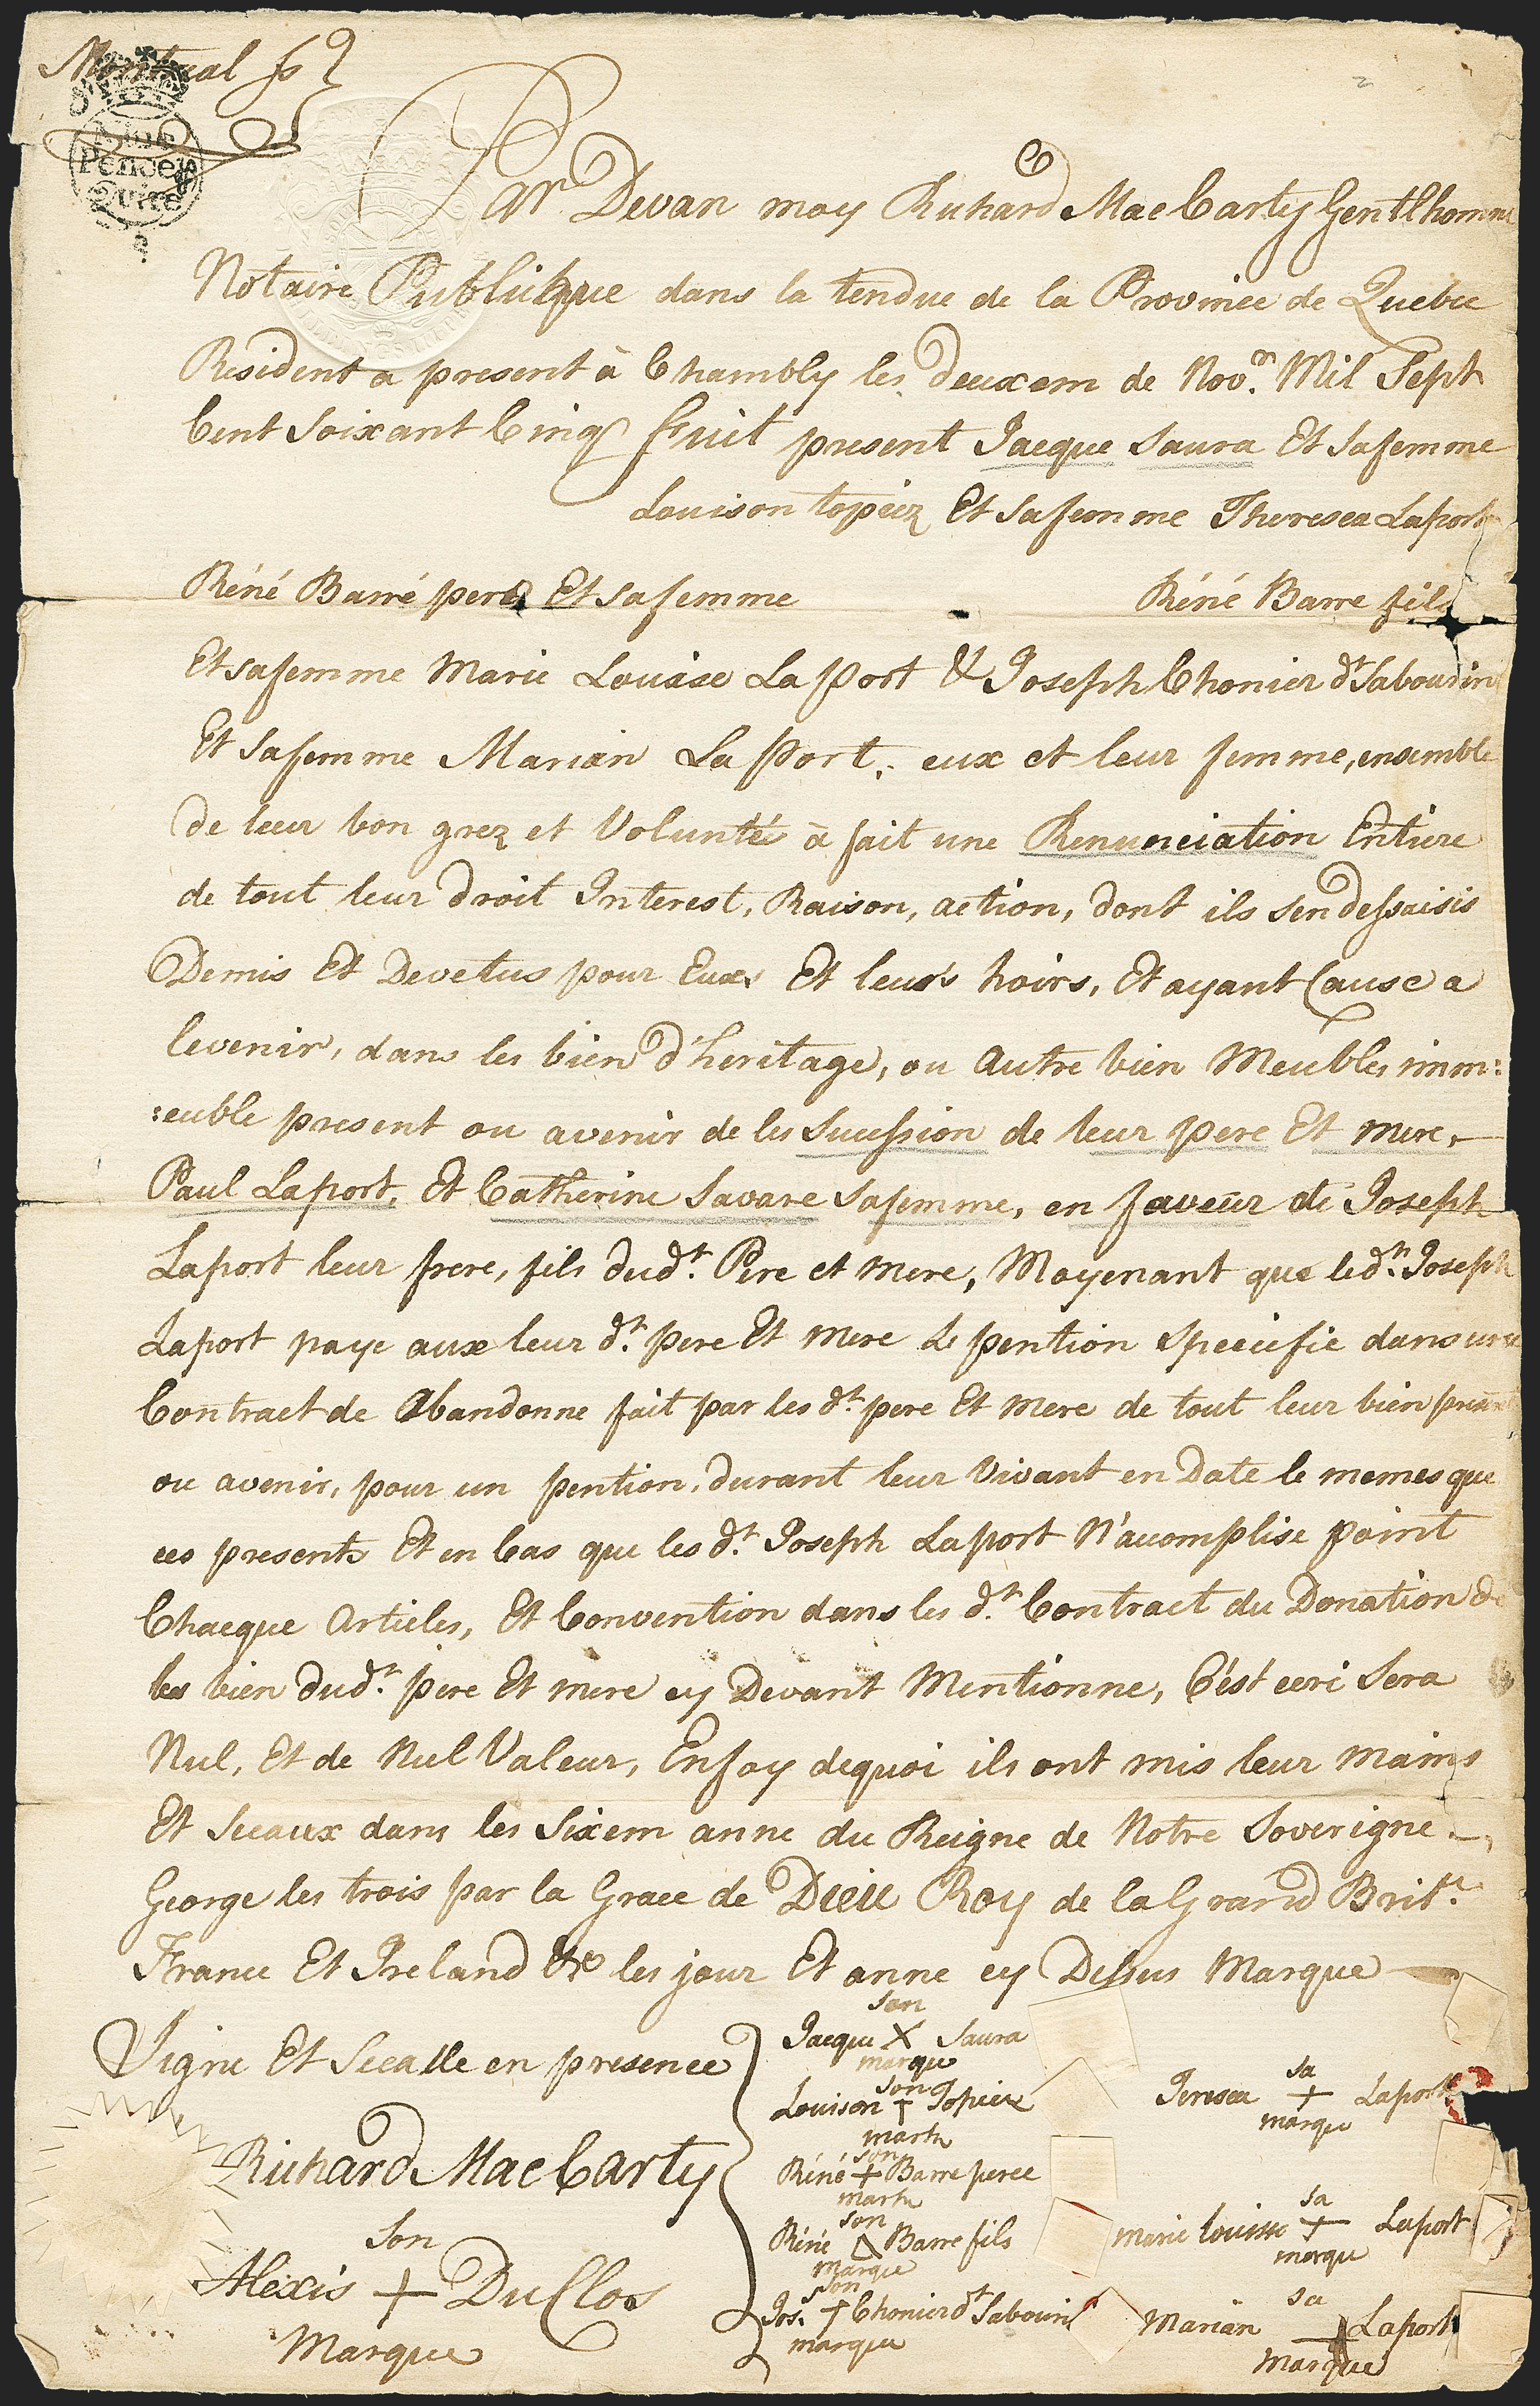 Montreal ss
Nine
Pence ps
Quire
Par Devan moy Richard MacCarty Gentlhomme
Notaire Publickque dans la tendue de la Province de Quebec
Resident a present à Chambly les deuxem de Nov.m Mil Sept
Cent Soixant Cinq fuit present Jacque Saura Et Safemme
Louison topiez Et Safemme Theresea Laport
Réné Barré pere Et Safemme Réné Barre fils
Et Safemme Marie Louise La Port & Joseph Chonier dt Sabourin
Et Safemme Marian La Port, eux et leur femme, ensemble
de leur bon grez et Volunté à fait une Renunciation Entiere
de tout leur droit Interest, Raison, action, dont ils sen dessaisis
Demis Et Devetus pour Eux Et leurs hoirs, Et ayant Cause a
levenir, dans les bien d'heritage, ou autre bien Meubles imm:
:euble present ou avenir de les Sucession de leur pere Et mere,
Paul Laport, Et Catherine Savare Safemme, en faveur de Joseph
Laport leur frere, fils dudt. Pere et mere, Moyenant que ledt. Joseph
Laport paye aux leur dt. pere Et mere Le pention Speciefie dans une
Contract de Abandonne fait par les dt. pere Et mere de tout leur bien present
ou avenir, pour un pention, durant leur Vivant en Date le memes que
ces presents Et en Cas que les dt. Joseph Laport N'acomplise point
Chacque Articles, Et Convention dans les dt. Contract du Donation de
les bien dudt. pere Et mere cy Devant Mentionne, C'ést ceci Sera
Nul, Et de Nul Valeur, Enfoy dequoi ils ont mis leur mains
Et Sceaux dans les Sixem anne du Reigne de Notre Soverigne
George les trois par la Grace de Dieu Roy de la Grand Brit.n
France Et Ireland &c les jour Et anne cy Dessus Marque
Signe Et Sceallé en presence
Richard MacCarty
Son
Alexis + DuClos
Marque
Son
Jacque X Saura
marque
Son
Louison + Topiez
mark
son
Réné + Barre pere
mark
son
Réné Barre fils
Marque
son
Jos. + Chonier dt Sabourin
marque
Sa
Teresea + Laport
marque
Sa
Marie louisse + Laport
marque
sa
Marian + Laport
Marque